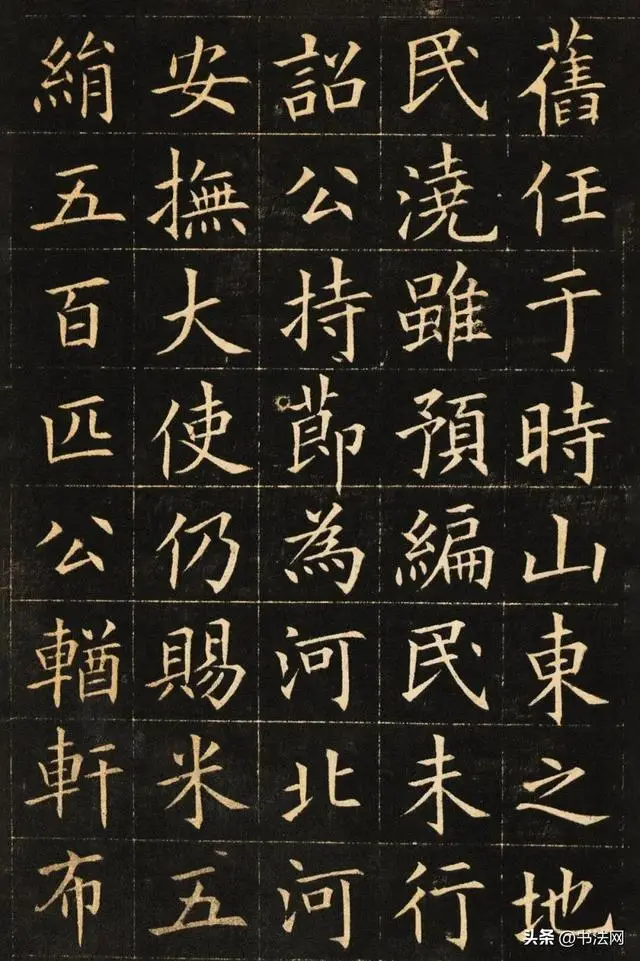 舊任于時山東之地
民澆雖預編民未行
詔公持節為河北河
安撫大使仍賜米五
絹五百匹公輶軒布
头条 @书法网